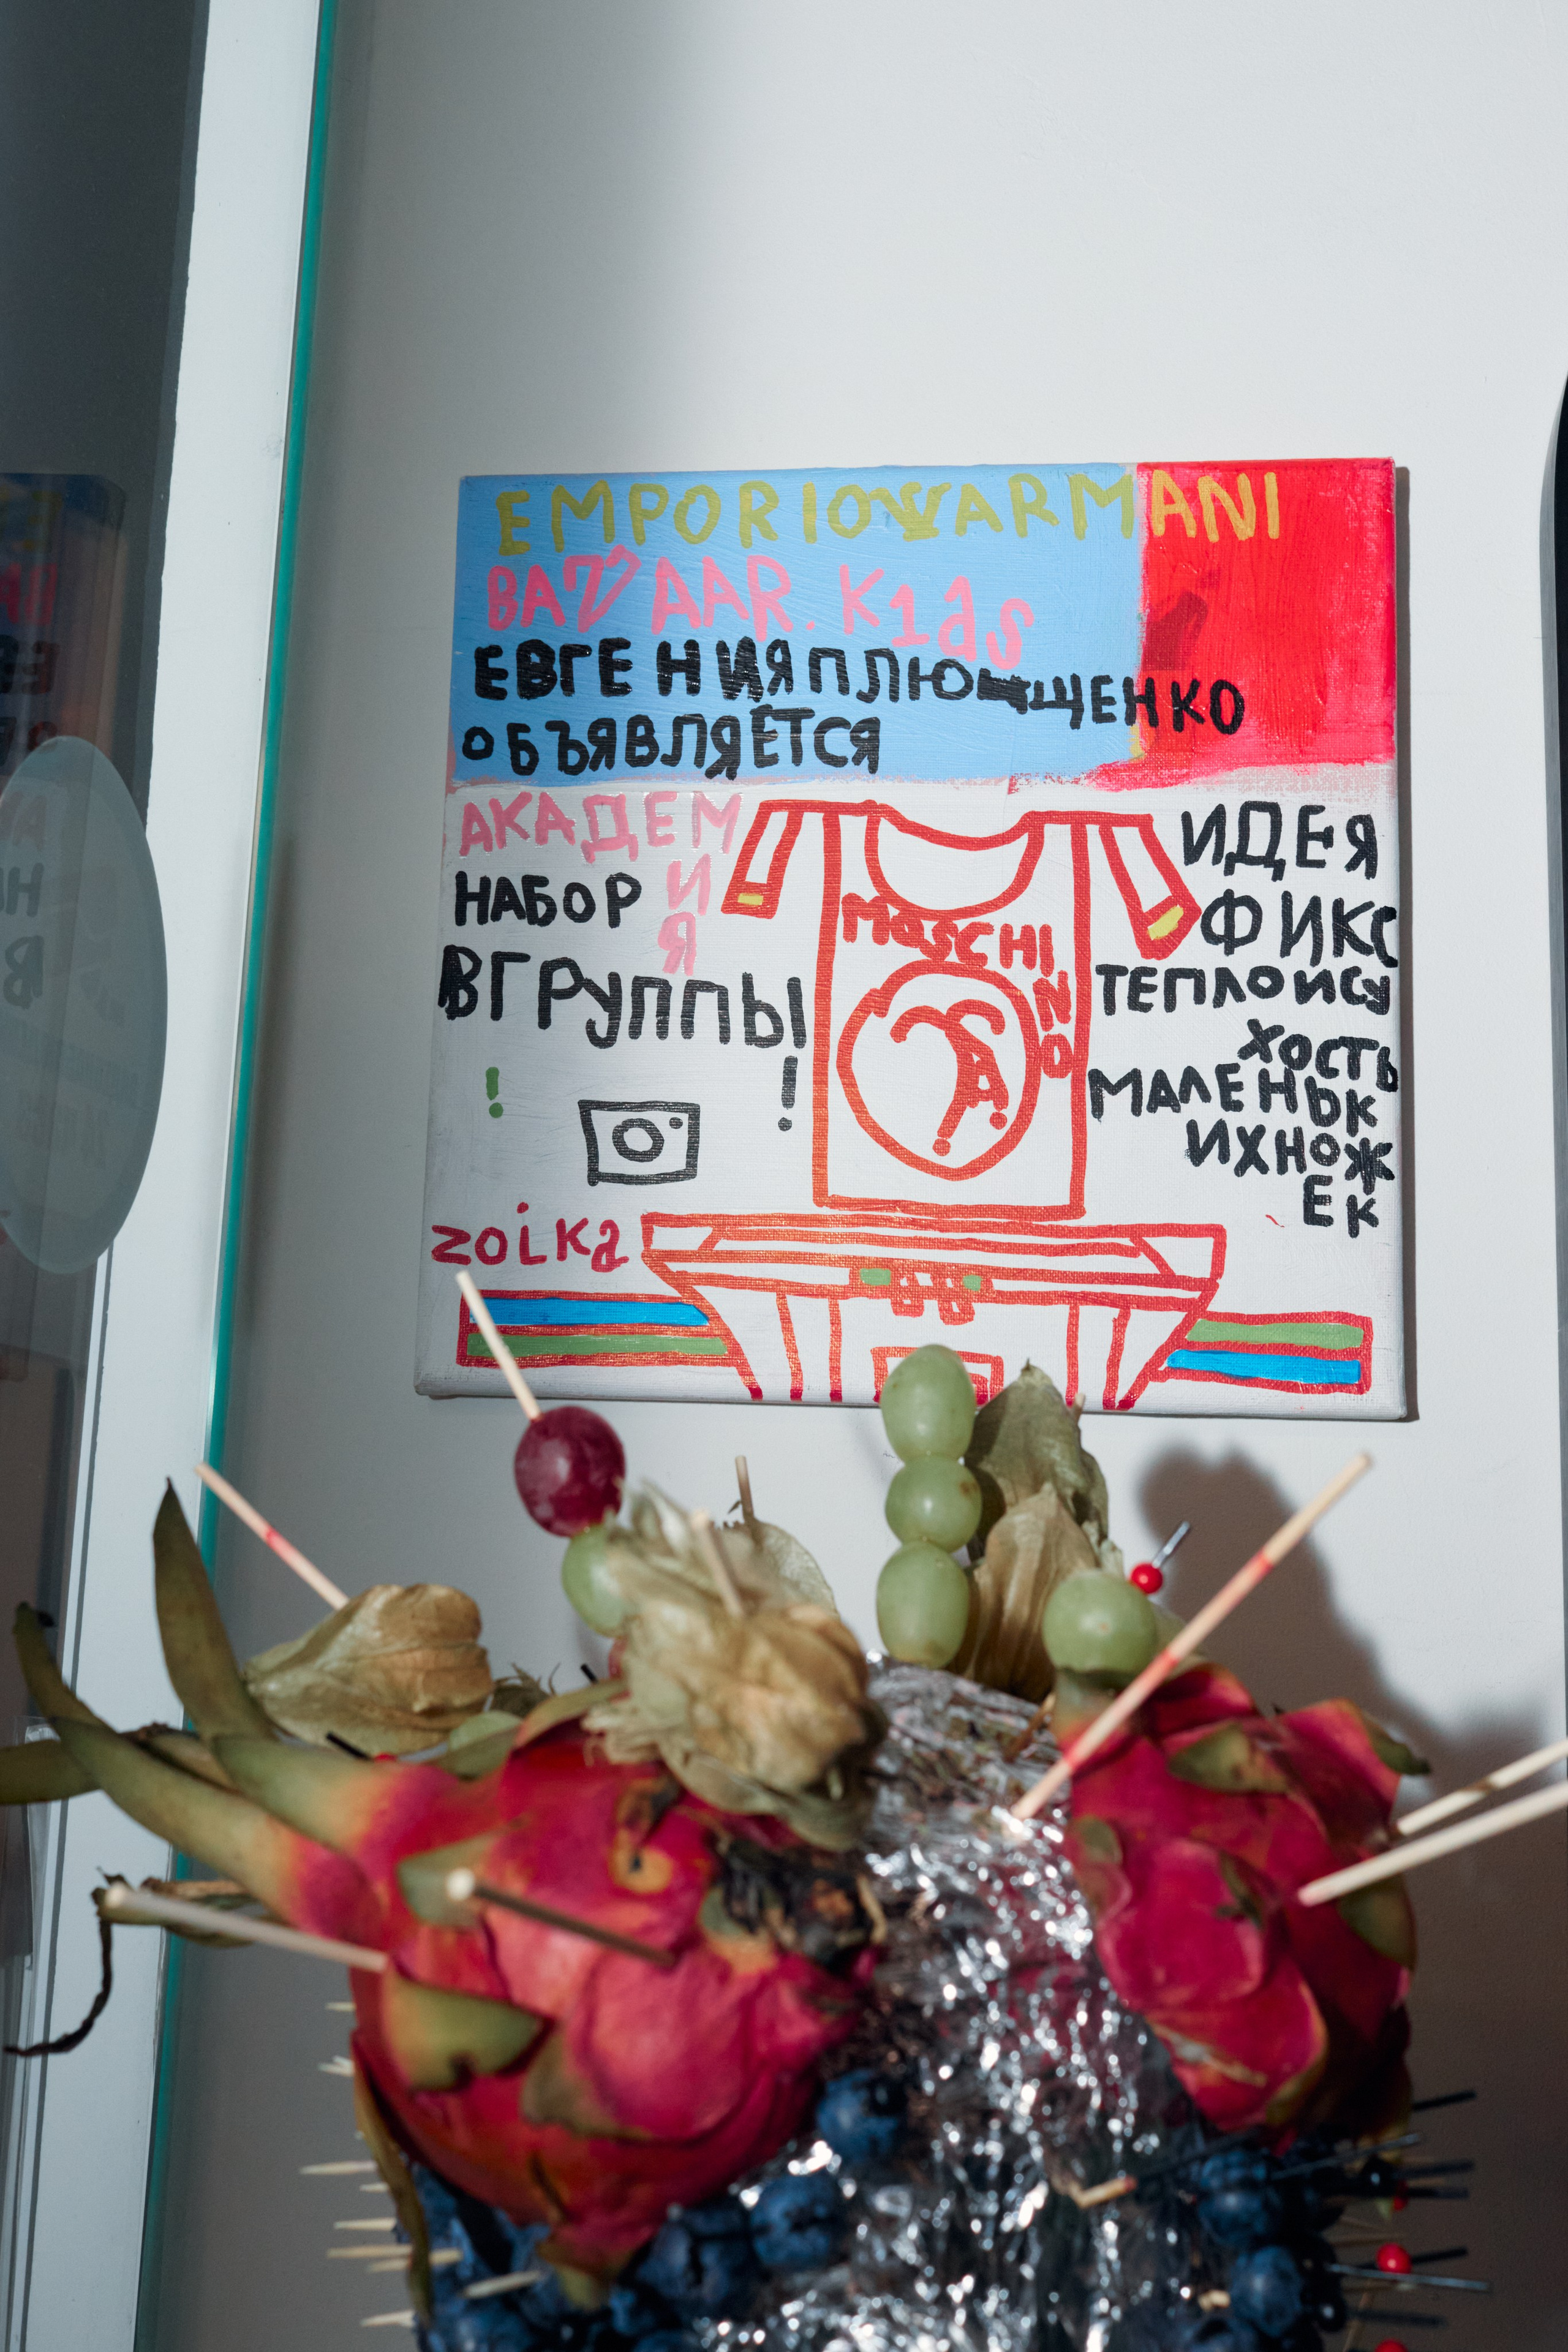 EMPORIO ARMANI
BAZAAR. K1ds
ЕВГЕНИЯ ПЛЮЩЕНКО
ОБЪЯВЛЯЕТСЯ
АКАДЕМИЯ
НАБОР
В ГРУППЫ!
!
zoika
MOSCHINO
ИДЕЯ
ФИКС
ТЕПЛО И СУ
ХОСТЬ
МАЛЕНЬК
ИХ НОЖ
ЕК